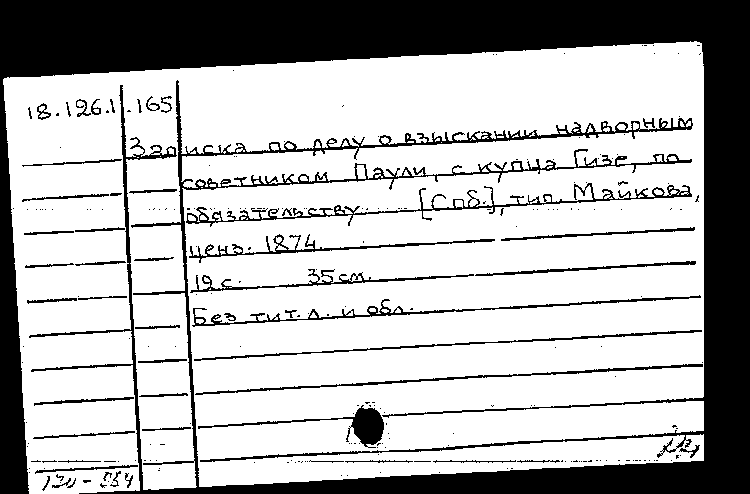 18.126.1.165
Записка по делу о взыскании надворным
советником Паули, с купца Гизе, по
обязательству. [Спб.], тип. Майкова,
ценз. 1874.
19 с. 35 см.
Без тит. л. и обл.